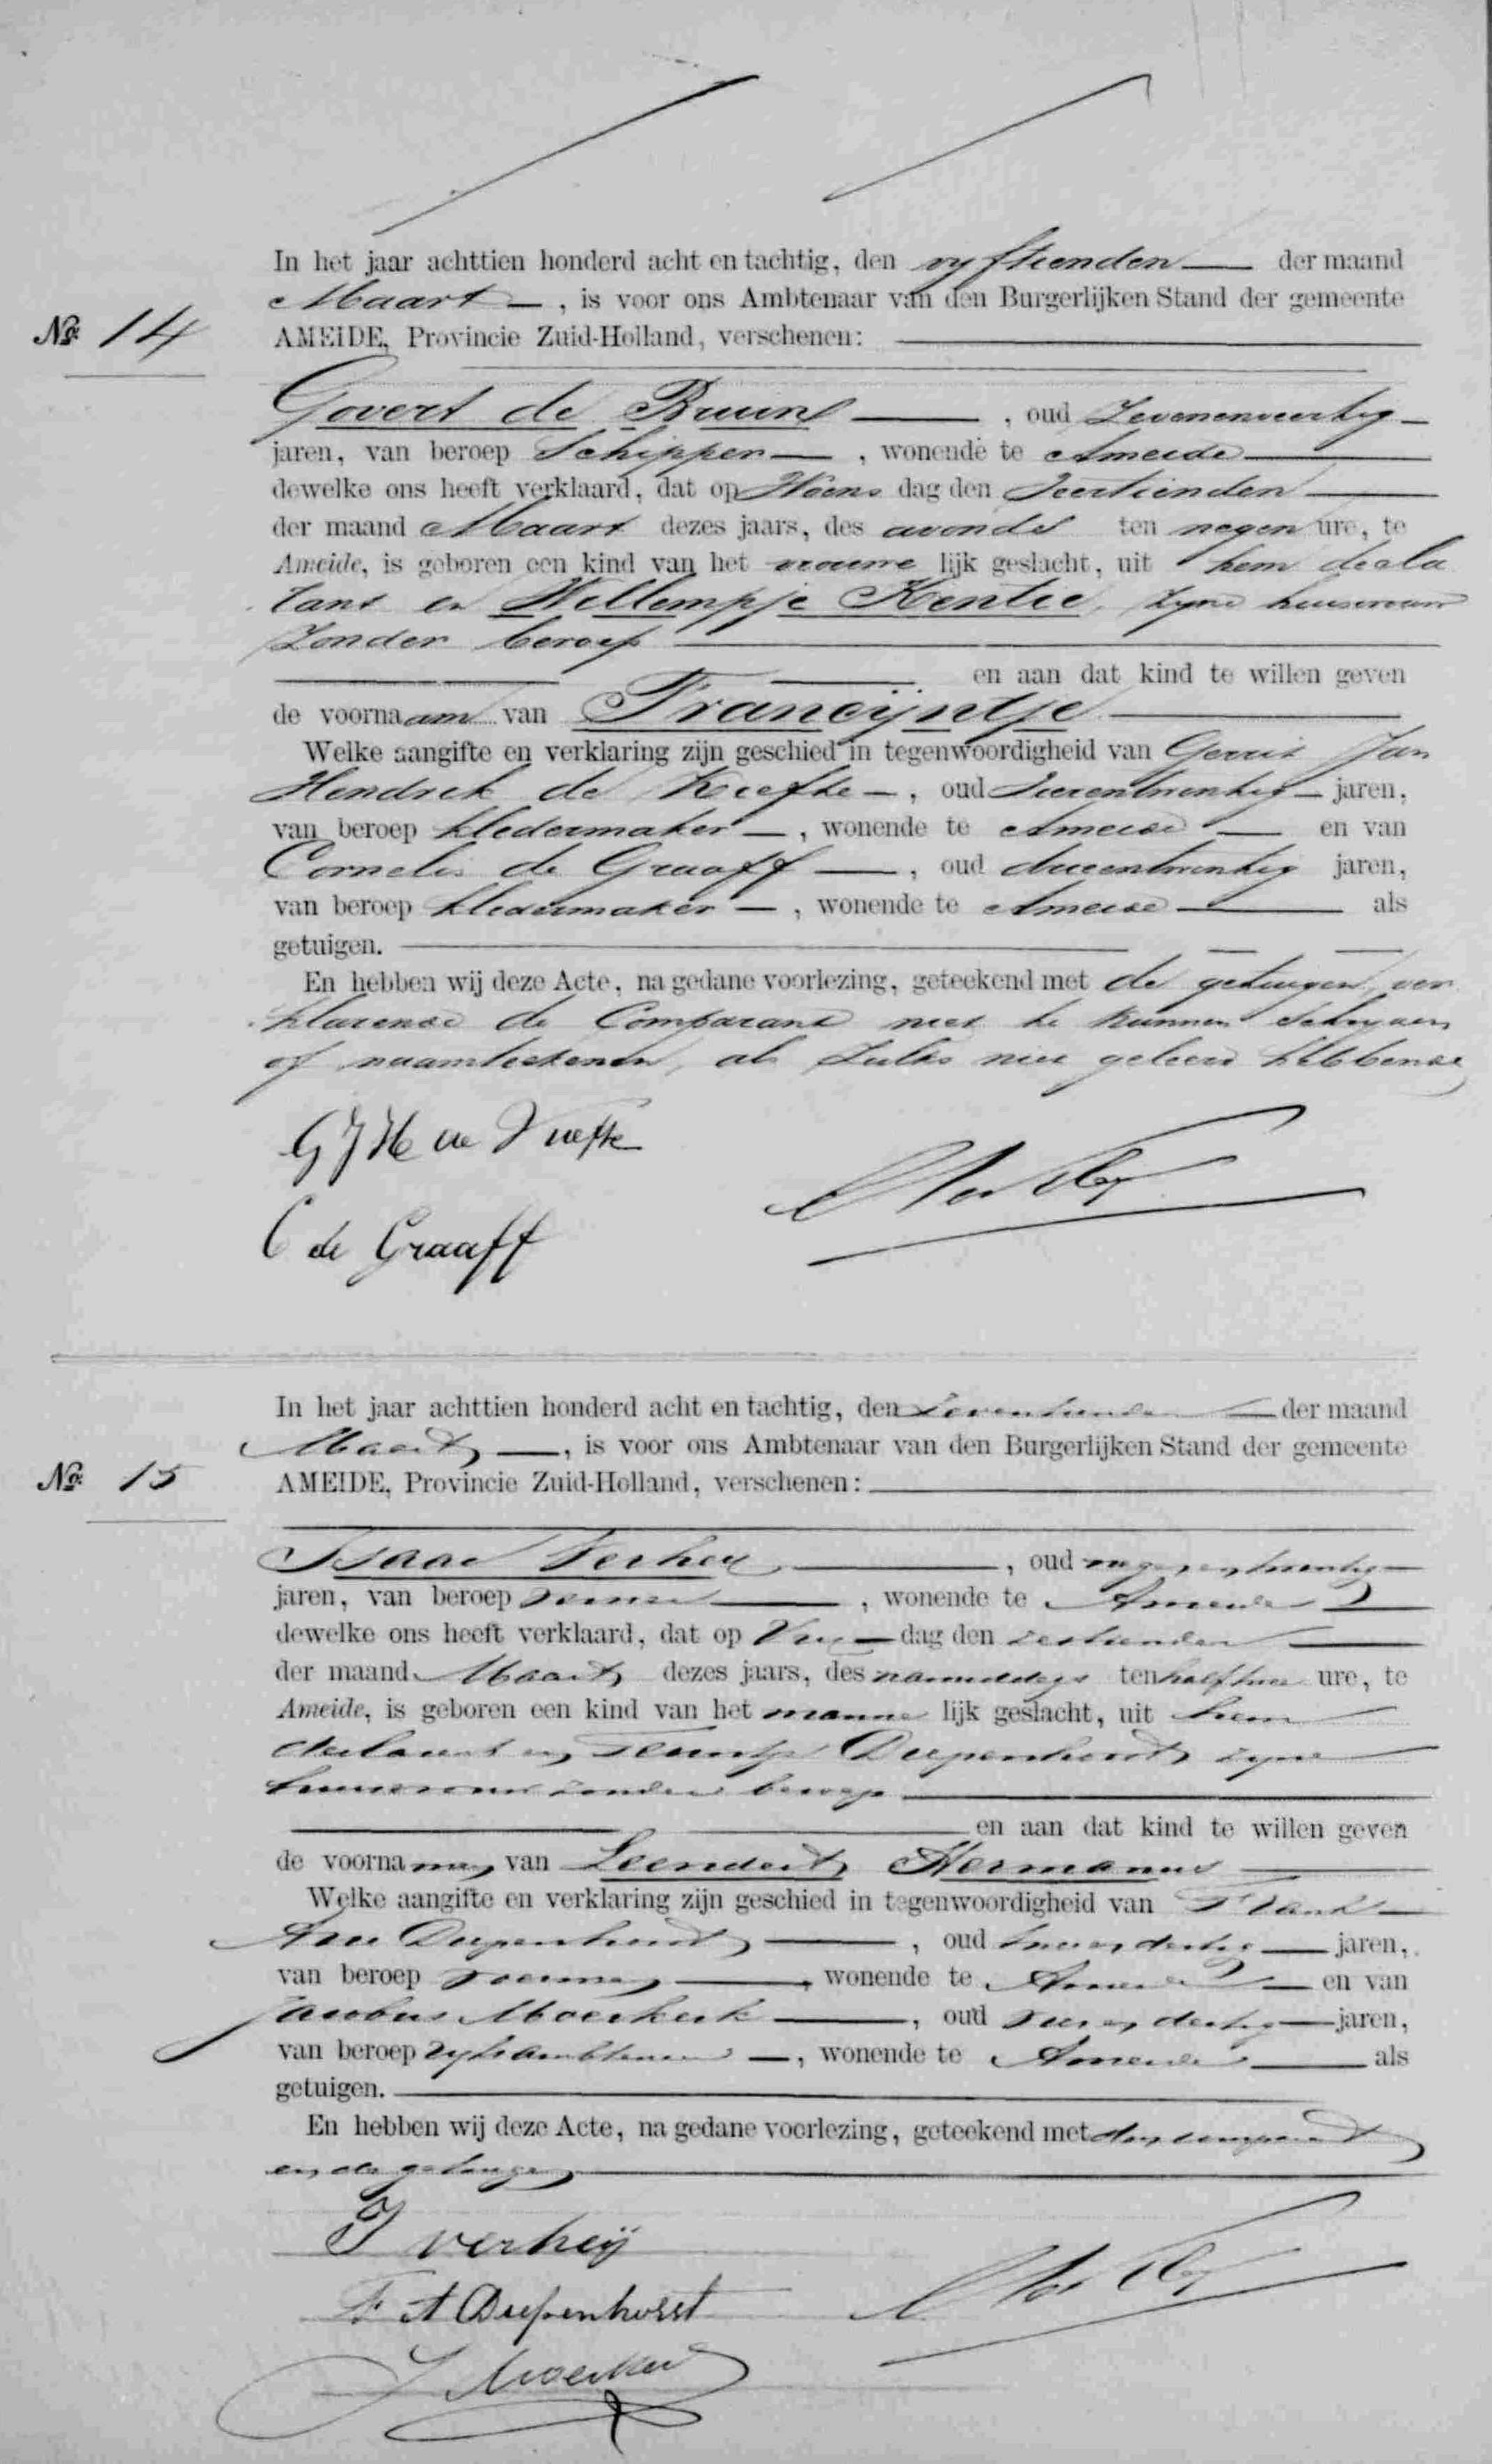 In het jaar achttien honderd acht en tachtig, den vyftienden der maand
Maart, is voor ons Ambtenaar van den Burgerlijken Stand der gemeente
No. 14
AMEIDE, Provincie Zuid-Holland, verschenen:
Govert de Bruin, oud Zevenenveertig
jaren, van beroep Schipper, wonende te Ameide
dewelke ons heeft verklaard, dat op Woens dag den veertienden
der maand Maart dezes jaars, des avonds ten negen ure, te
Ameide, is geboren een kind van het vrouwe lijk geslacht, uit hem decla
rant en Willempje Kentie, zyne huisvrouw
Zonder beroep
en aan dat kind te willen geven
de voornaam van Francijntje
Welke aangifte en verklaring zijn geschied in tegenwoordigheid van Gerrit Jan
Hendrik de, oud jaren,
van beroep kledermaker, wonende te Ameide en van
Cornelis de Graaff, oud drieentwintig jaren,
van beroep kledermaker, wonende te Ameide als
getuigen.
En hebben wij deze Acte, na gedane voorlezing, geteekend met de getuigen, ver
klarende de Comparant niet te kunnen schryven
of naamteekenen, als zulks niet geleerd hebbende
G J H de
C de Graaff
In het jaar achttien honderd acht en tachtig, den zeventienden der maand
Maart, is voor ons Ambtenaar van den Burgerlijken Stand der gemeente
No. 15
AMEIDE, Provincie Zuid-Holland, verschenen:
Isaac Verhey, oud negenentwintig
jaren, van beroep, wonende te Ameide
dewelke ons heeft verklaard, dat op Vry dag den zestienden
der maand Maart dezes jaars, des namiddags ten half twee ure, te
Ameide, is geboren een kind van het manne lijk geslacht, uit hem
declarant en Teuntje Diepenhorst zyne
huisvrouw zonder beroep
en aan dat kind te willen geven
de voornamen van Leendert Hermanus
Welke aangifte en verklaring zijn geschied in tegenwoordigheid van Frank
Arie Diepenhorst, oud jaren,
van beroep, wonende te Ameide en van
Jacobus Moerkerk, oud jaren,
van beroep ryksambtenaar, wonende te Ameide als
getuigen.
En hebben wij deze Acte, na gedane voorlezing, geteekend met den comparant
en de getuigen
I verheij
F A Diepenhorst
J Moerkerk